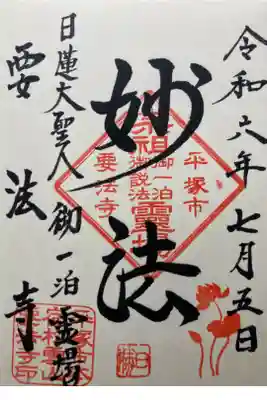 令和六年七月五日
平塚市
妙法
宗祖御一泊御説法靈場
要法寺
日蓮大聖人御一泊霊場
要法寺